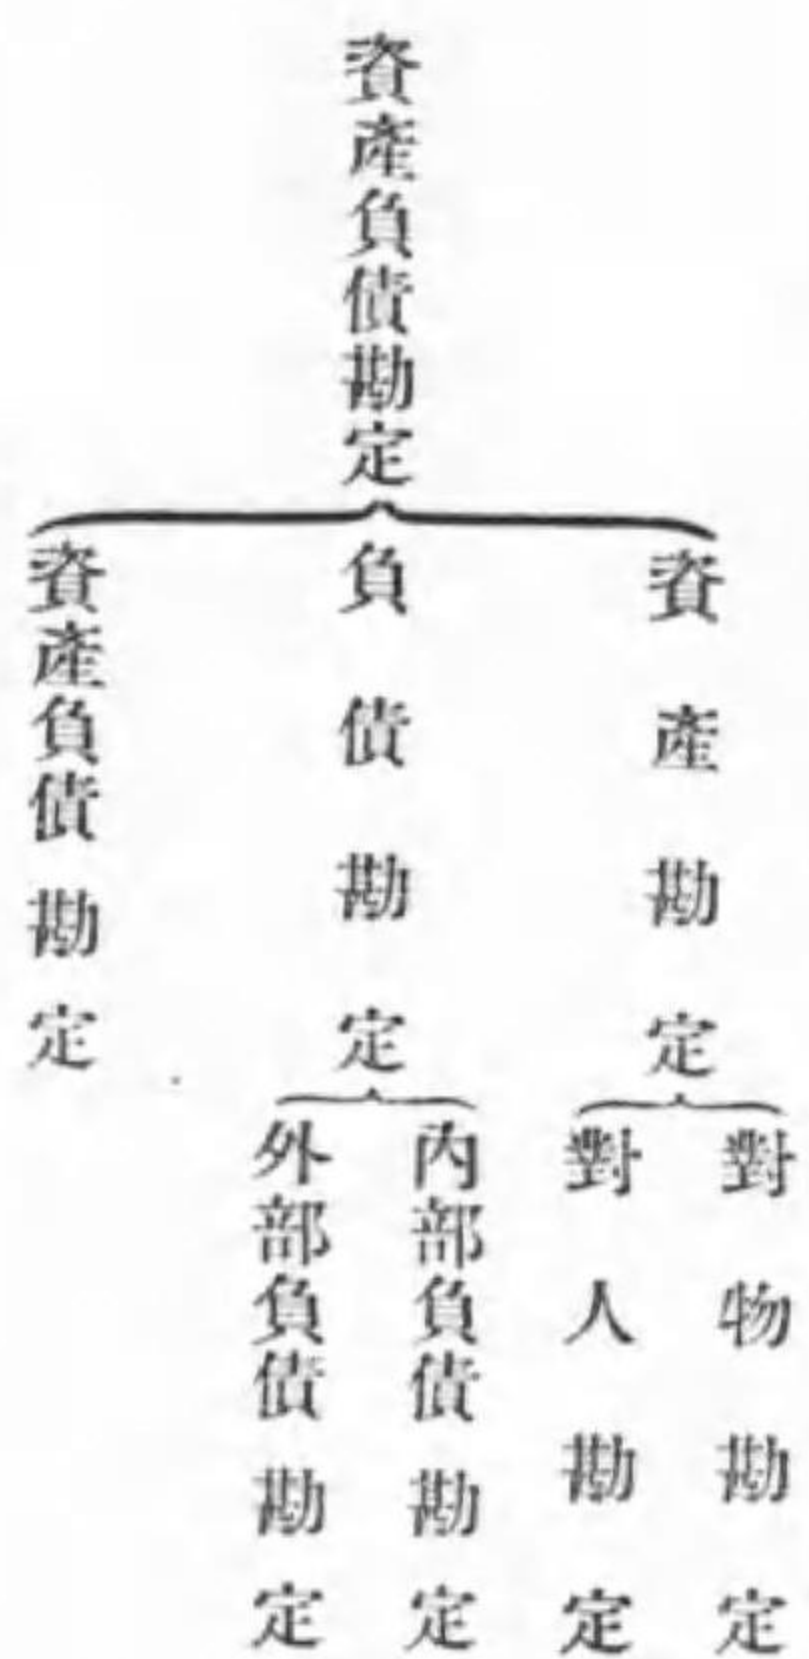 資產負債勘定
資產勘定
對物勘定
對人勘定
負債勘定
內部負債勘定
外部負債勘定
資產負債勘定